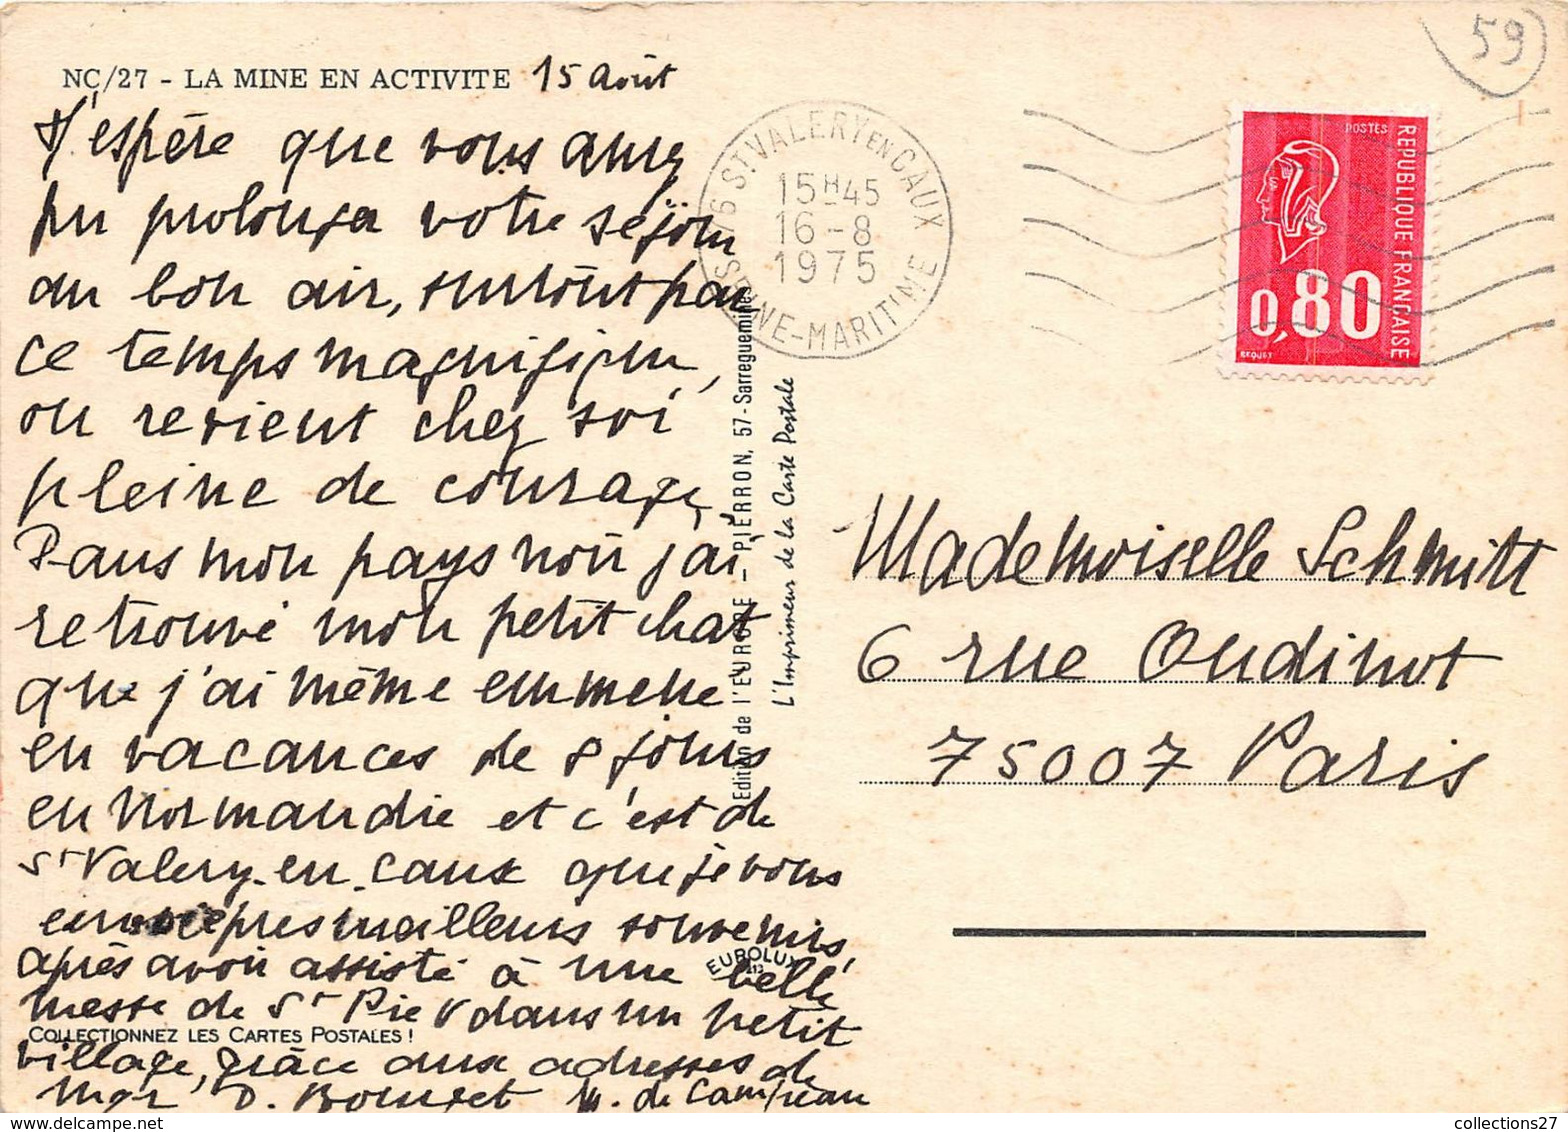 NC/27 - LA MINE EN ACTIVITE 15 août
J'espère que vous aurez
pu prolonger votre séjour
au bon air, surtout par
ce temps magnifique,
on revient chez soi
pleine de courage,
Dans mon pays noir j'ai
retrouvé mon petit chat
que j'ai même emmené
en vacances de 8 jours
en Normandie et c'est de
St Valery-en-Caux que je vous
envoie mes meilleurs souvenirs,
après avoir assisté à une belle
messe de St Pie V dans un petit
village, grâce aux adresses de
Mgr D. de
COLLECTIONNEZ LES CARTES POSTALES !
EUROLUX
Edition de l'EUROPE - PIERRON, 57 - Sarreguemines
L'Imprimeur de la Carte Postale
76 ST VALERY EN CAUX
15H45
16-8
1975
SEINE-MARITIME
59
POSTES
REPUBLIQUE FRANÇAISE
0,80
BEQUET
Mademoiselle Schmitt
6 rue Oudinot
75007 Paris
collections27